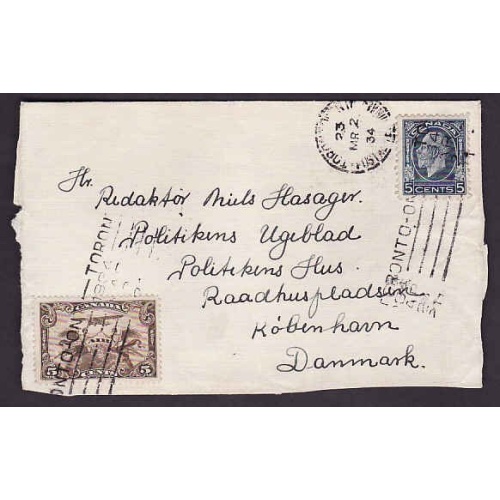 TORONTO
23
MR 2
34
CANADA
5 CENTS 5
Hr.
Redaktør Niels Hasager.
Politikens Ugeblad
Politikens Hus.
Raadhuspladsen.
København
Danmark.
TORONTO-ONT
CANADA
5 CENTS 5